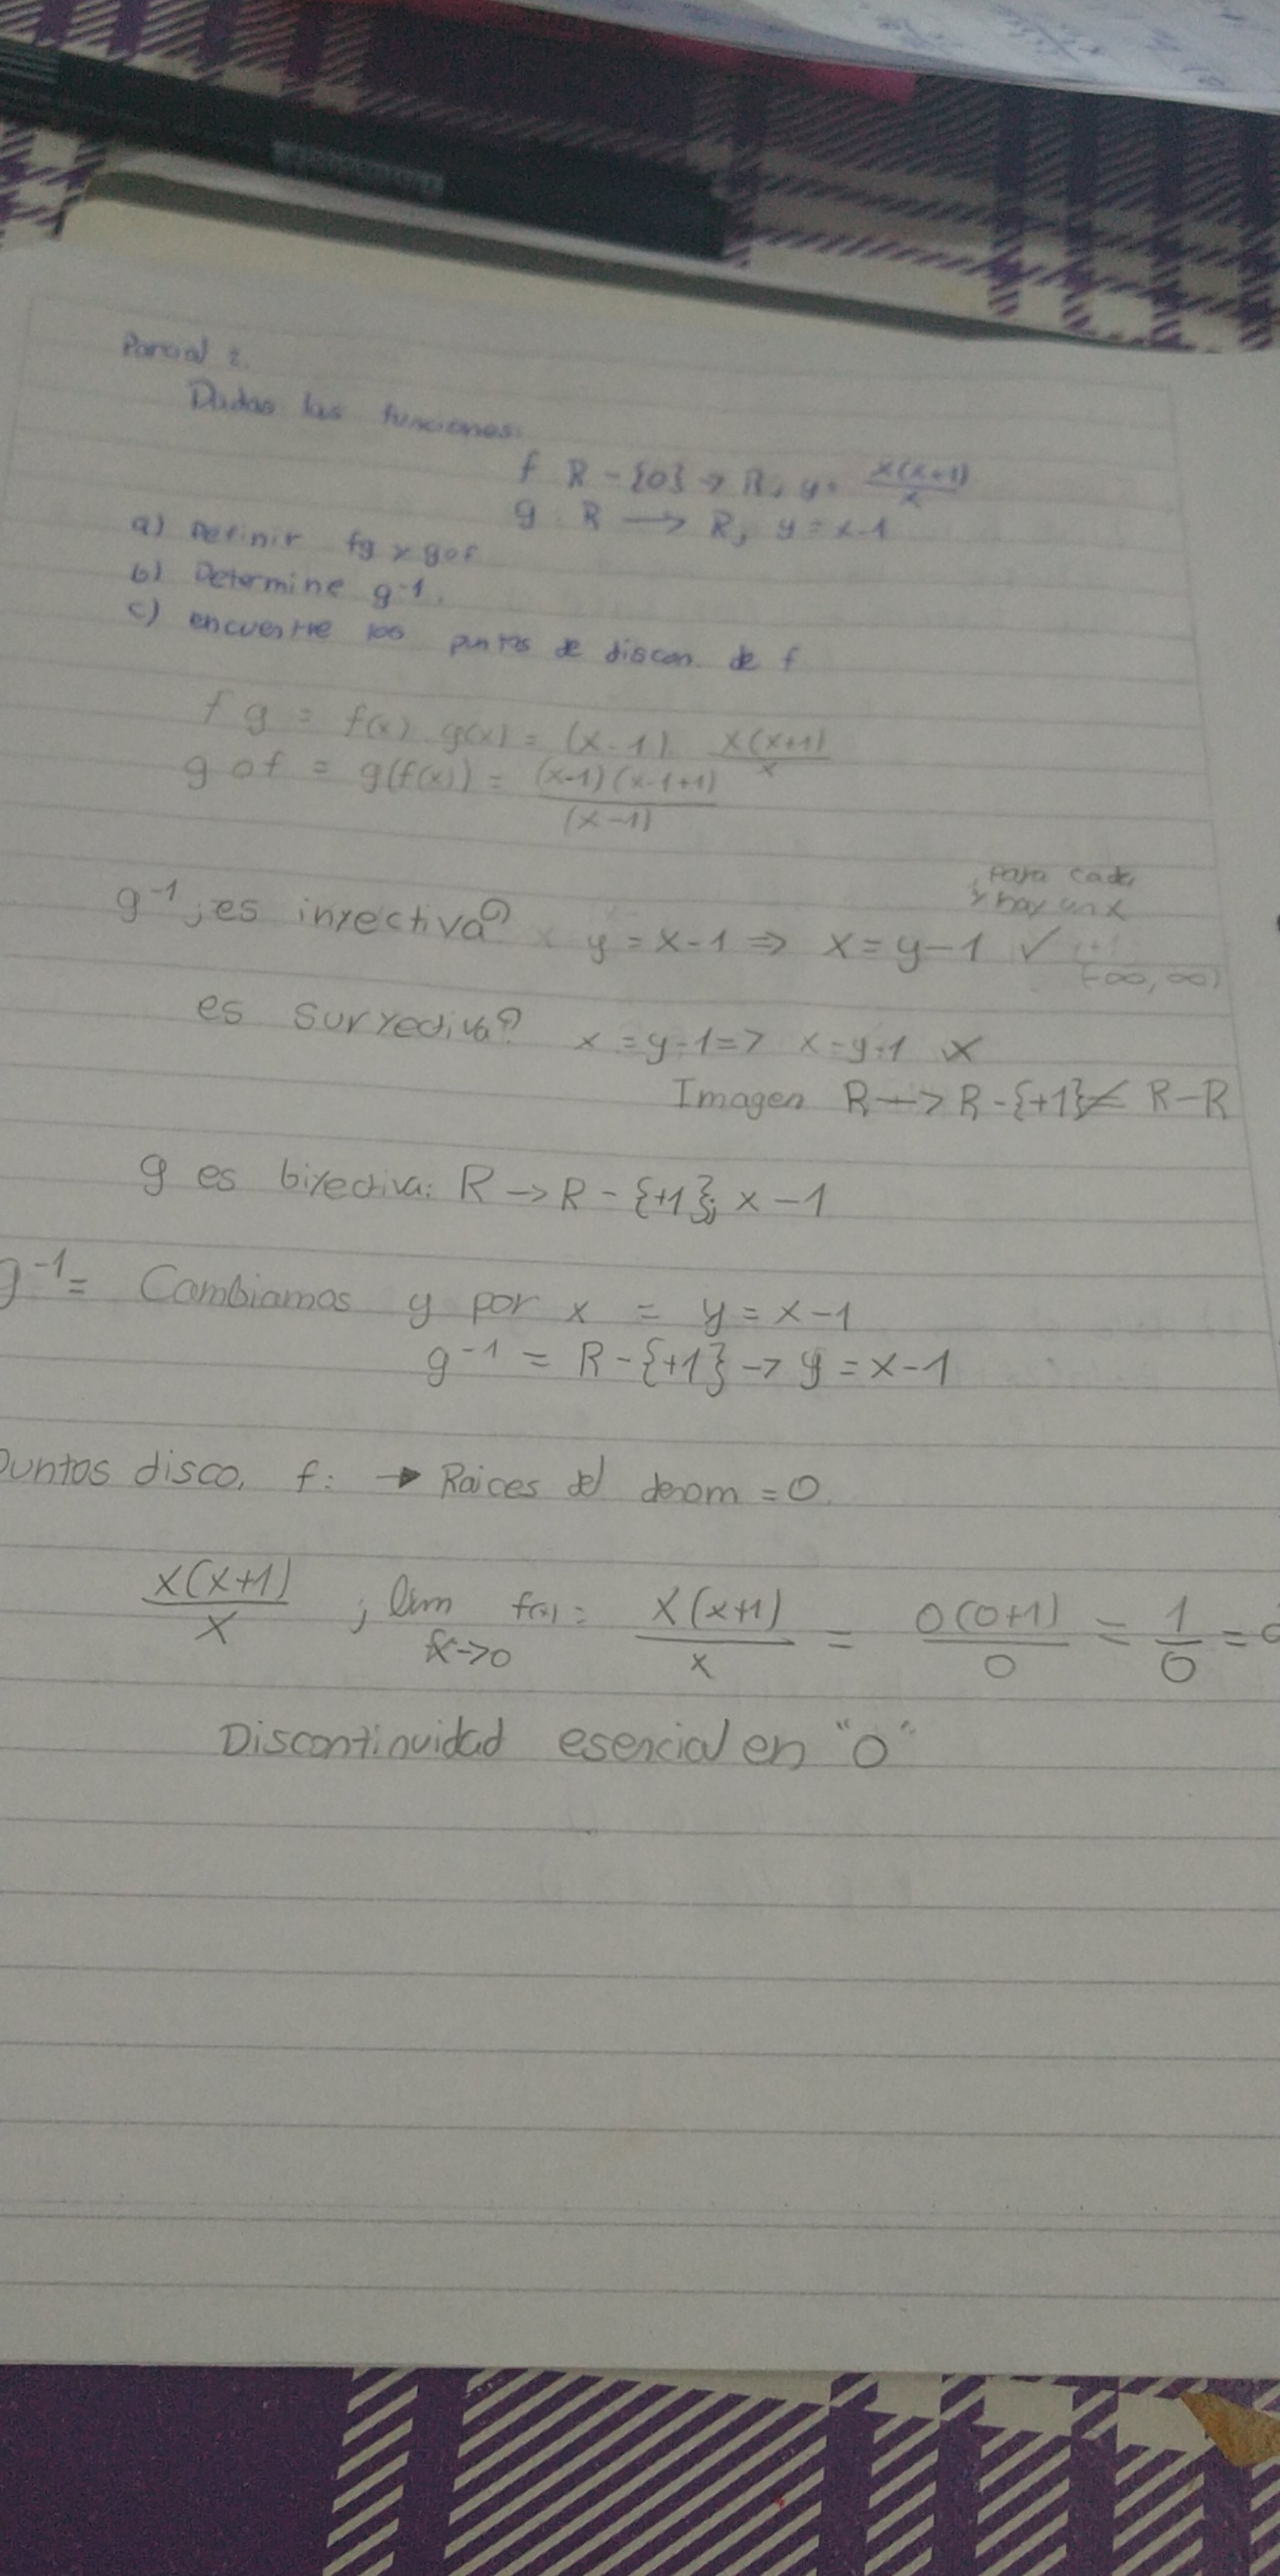 Parcial 2.
Dadas las funciones:
f R - {0} → R, y = x(x+1)/x
g : R → R, y = x-1
a) Definir fg y gof
b) Determine g-1.
c) encuentre los puntos de discon. de f
f g = f(x) . g(x) = (x-1) . x(x+1)/x
g o f = g(f(x)) = (x-1)(x-1+1)/(x-1)
para cada
y hay un x
g-1, ¿es inyectiva? y = x-1 ⇒ x = y-1 ✓
(-∞, ∞)
es suryectiva? x = y-1 => x = y-1 X
Imagen R → R - {+1} ≠ R - R
g es biyectiva: R → R - {+1}; x - 1
g-1 = Cambiamos y por x = y = x-1
g-1 = R - {+1} → y = x-1
Puntos disco. f: → Raices del denom = 0.
x(x+1)/x ; lim x→0 f(x) = x(x+1)/x = 0(0+1)/0 = 1/0 =
Discontinuidad esencial en "0"